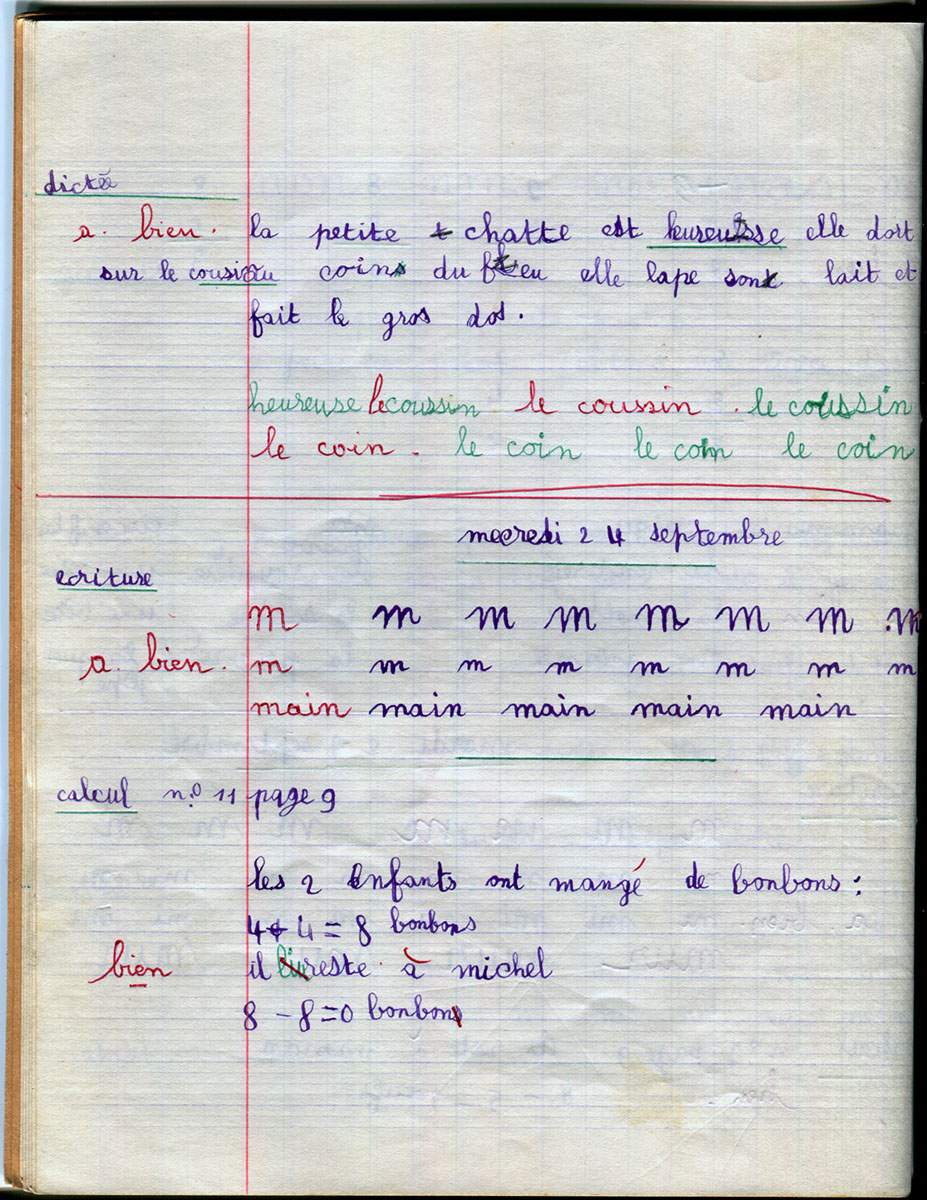 dictée
a. bien. la petite chatte est heureusse elle dort
sur le cousin au coins du feu elle lape son lait et
fait le gros dos.
heureuse le coussin. le coussin. le coussin
le coin. le coin le coin le coin
mecredi 24 septembre
ecriture
m m m m m m m m
a. bien. m m m m m m m m
main main main main main
calcul n.º 11 page 9
les 2 enfants ont mangé de bonbons :
4 + 4 = 8 bonbons
bien il reste à michel
8 - 8 = 0 bonbon